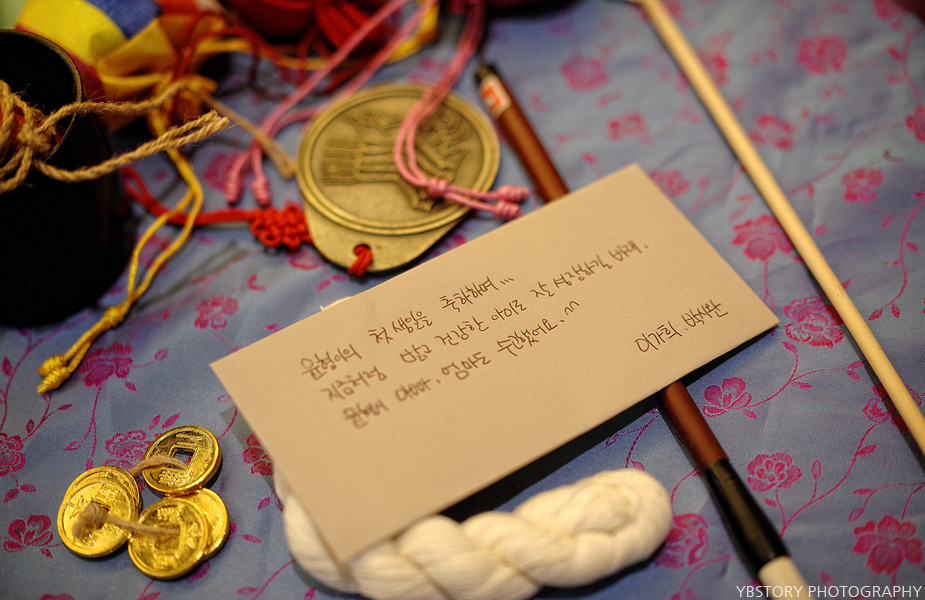 윤형이의 첫 생일을 축하하며...
지금처럼 밝고 건강한 아이로 잘 성장하길 바래.
아빠. 엄마도 수고했어요. ^^
이가희. 박시완
YBSTORY PHOTOGRAPHY